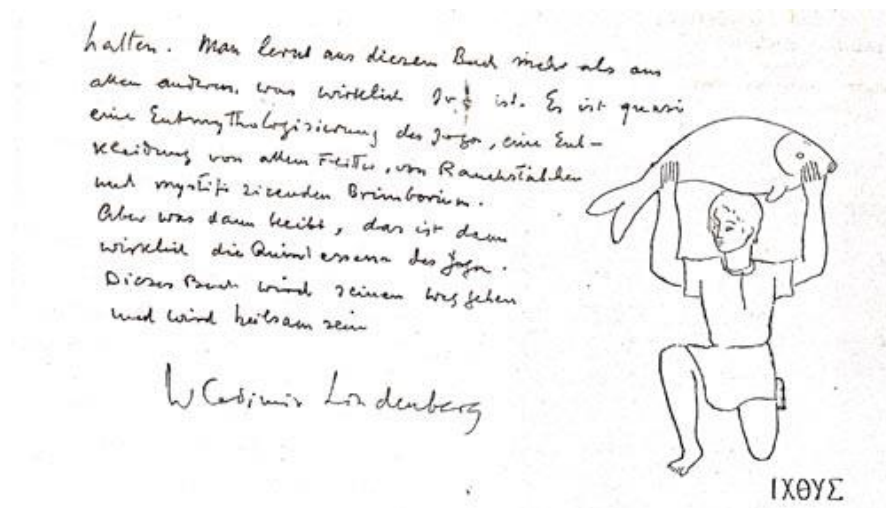 halten. Man lernt aus diesem Buch mehr als aus
allen anderen, was wirklich ist. Es ist quasi
eine Entmythologisierung des Joga, eine Ent-
kleidung von allem Flitter, von Rauchstäbchen
und mystifizierenden Brimborium.
Aber was dann bleibt, das ist dann
wirklich die Quintessenz des Joga.
Dieses Buch wird seinen Weg gehen
und wird heilsam sein
Wladimir Lindenberg
ΙΧΘΥΣ